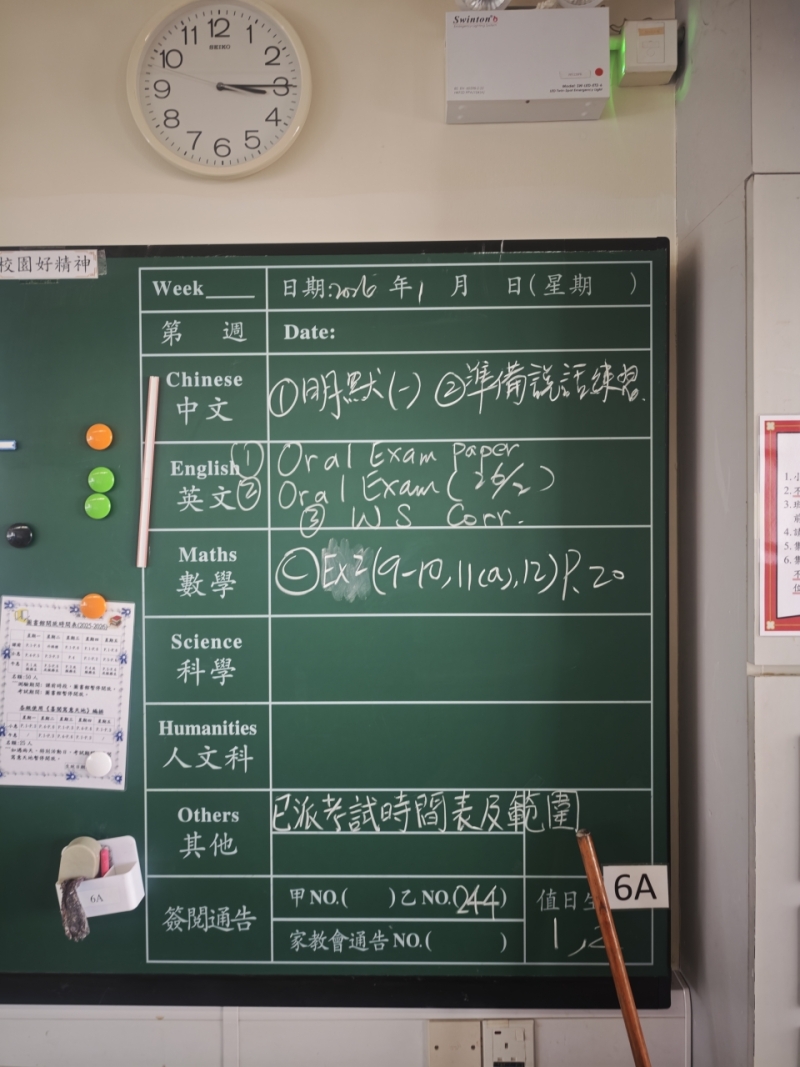 11 12 1
10 2
9 3
8 4
7 6 5
SEIKO
Swinton
校園好精神
Week
日期:2026 年1 月 日(星期 )
第 週
Date:
Chinese
中文
①明默(一) ②準備說話練習
English
英文
① Oral Exam paper
② Oral Exam (26/2)
③ WS Corr.
Maths
數學
Ex2(9-10, 11(a), 12) P. 20
Science
科學
Humanities
人文科
Others
其他
已派考試時間表及範圍
簽閱通告
甲NO.( )乙NO.(244)
家教會通告NO.( )
值日生
1,2
6A
圖書館開放時間表(2025-2026)
6A